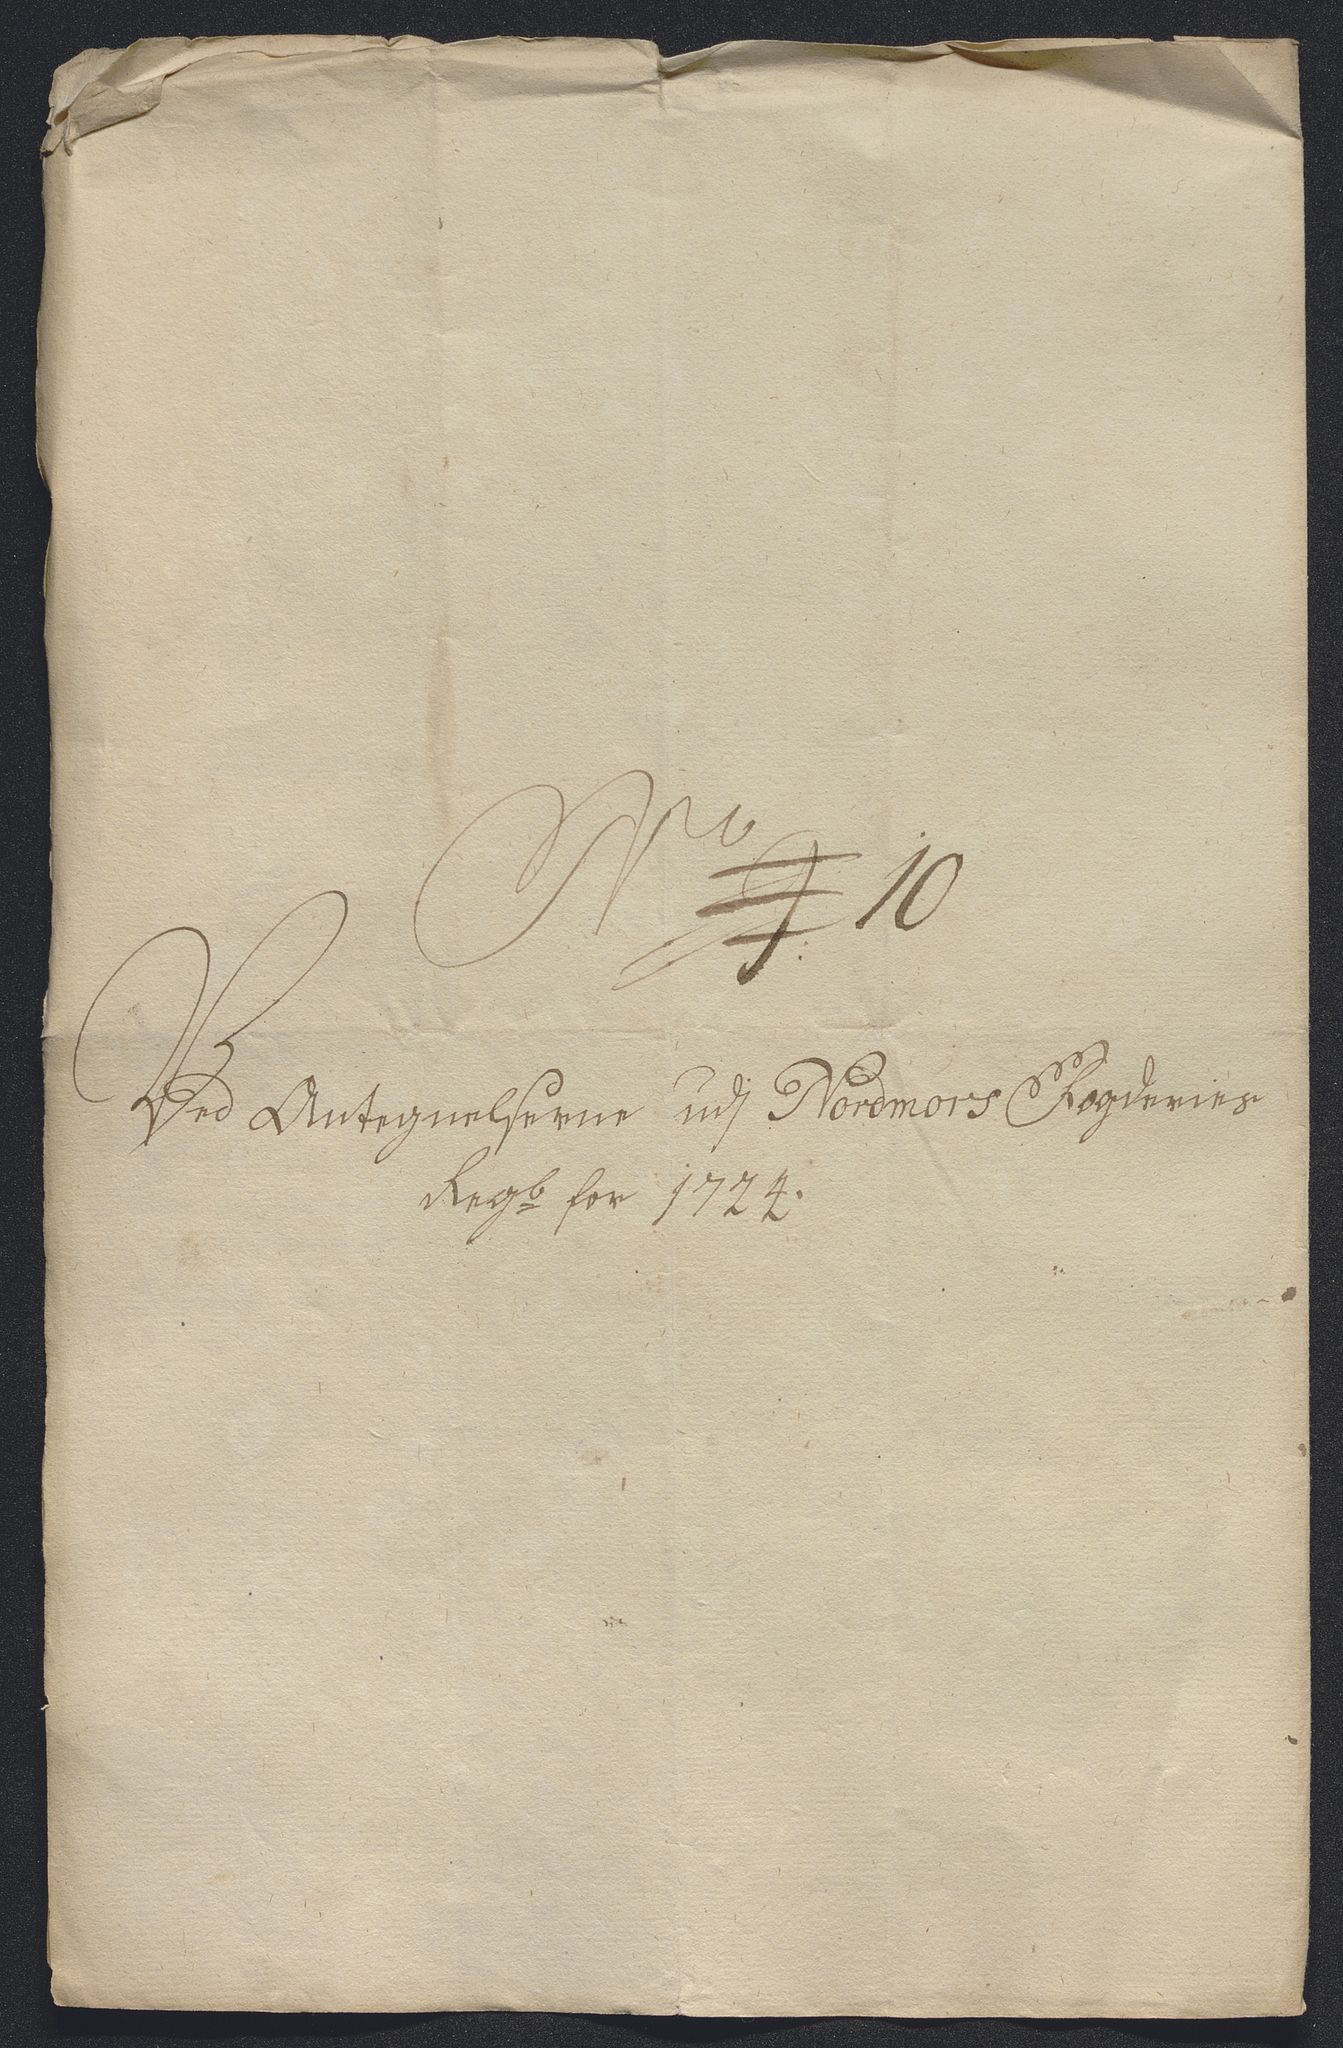 No 10
Ved Antegnelserne udj Nordmørs Fogderies
Regb for 1724.